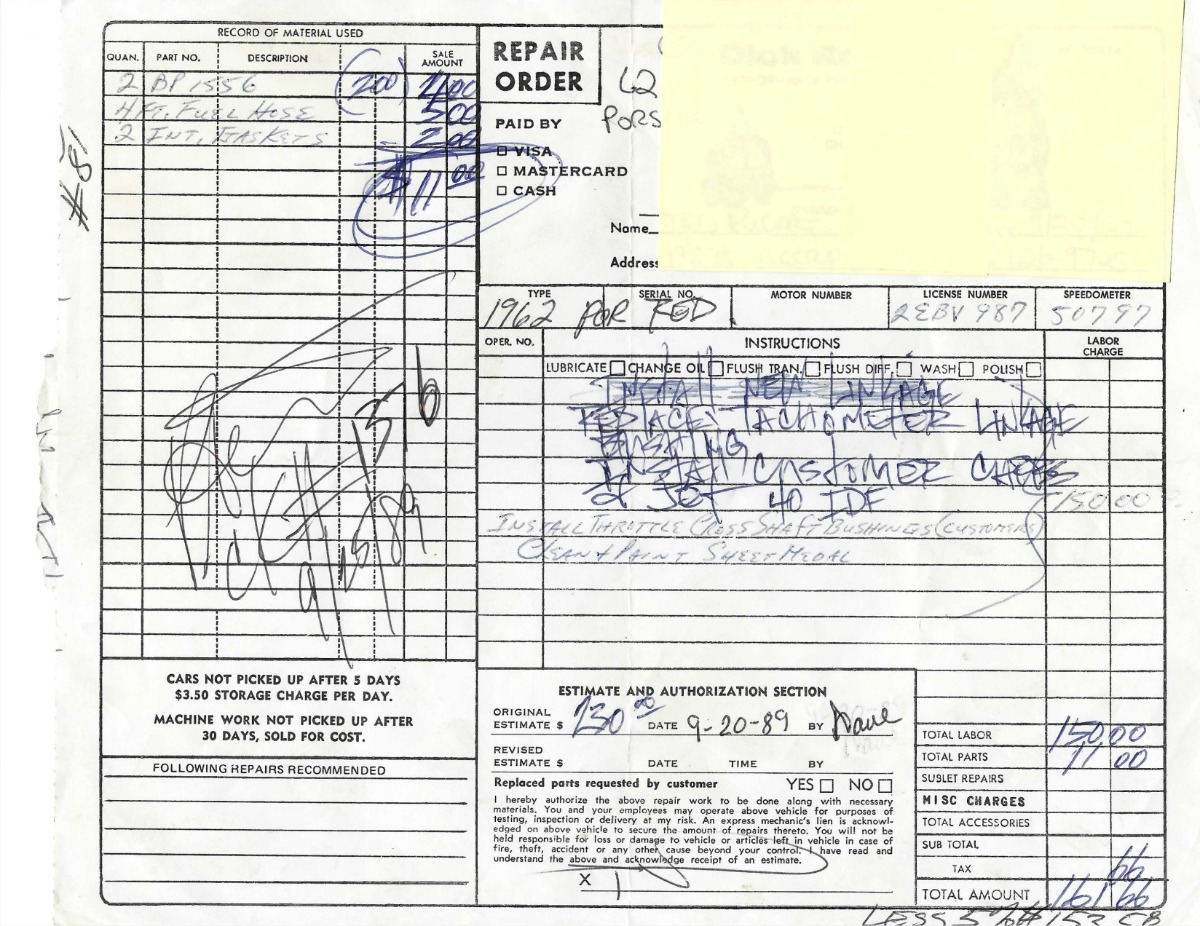 RECORD OF MATERIAL USED
QUAN. PART NO. DESCRIPTION SALE AMOUNT
2 BP 1556 (200) 400
4 FT. FUEL HOSE 500
2 INT. GASKETS 200
$11.00
#81
REPAIR ORDER
62
PORS
PAID BY
VISA
MASTERCARD
CASH
Name
Address
TYPE SERIAL NO. MOTOR NUMBER LICENSE NUMBER SPEEDOMETER
1962 POR RED 2EBV 987 50797
OPER. NO. INSTRUCTIONS LABOR CHARGE
LUBRICATE CHANGE OIL FLUSH TRAN. FLUSH DIFF. WASH POLISH
INSTALL NEW LINKAGE
REPLACE TACHOMETER LINKAGE
BUSHING
INSTALL CUSTOMER CARBS
& JET 40 IDF 150.00
INSTALL THROTTLE CROSS SHAFT BUSHINGS (CUSTOMERS)
CLEAN & PAINT SHEET MEDAL
CARS NOT PICKED UP AFTER 5 DAYS
$3.50 STORAGE CHARGE PER DAY.
MACHINE WORK NOT PICKED UP AFTER
30 DAYS, SOLD FOR COST.
FOLLOWING REPAIRS RECOMMENDED
ESTIMATE AND AUTHORIZATION SECTION
ORIGINAL ESTIMATE $ 230.00 DATE 9-20-89 BY Dave
REVISED ESTIMATE $ DATE TIME BY
Replaced parts requested by customer YES NO
I hereby authorize the above repair work to be done along with necessary
materials. You and your employees may operate above vehicle for purposes of
testing, inspection or delivery at my risk. An express mechanic's lien is acknowl-
edged on above vehicle to secure the amount of repairs thereto. You will not be
held responsible for loss or damage to vehicle or articles left in vehicle in case of
fire, theft, accident or any other cause beyond your control. I have read and
understand the above and acknowledge receipt of an estimate.
X
TOTAL LABOR 150.00
TOTAL PARTS 11 00
SUBLET REPAIRS
MISC CHARGES
TOTAL ACCESSORIES
SUB TOTAL
TAX 66
TOTAL AMOUNT 161 66
LESS 5%